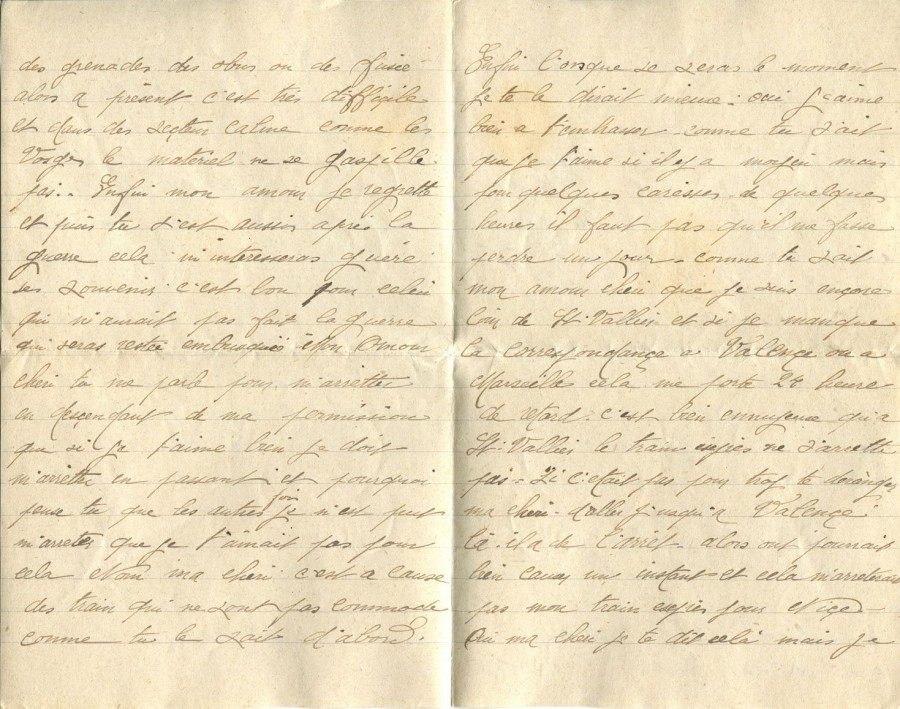 des grenades des obus ou des fusé
alors a présent c'est très difficile
et dans des secteur calme comme les
Vosges le materiel ne se gaspille
pas. Enfin mon amour je regrette
et puis tu s'est aussis après la
guerre cela m'interesseras guère
ses souvenir c'est bon pour celui
qui n'aurait pas fait la guerre
qui seras restée embusquée. Mon Amour
cheri tu me parle pour m'arretter
en descendant de ma permission
que si je t'aime bien je dois
m'arretter en passant et pourquoi
pense tu que les autres fois je n'est put
m'arreter que je t'aimait pas pour
cela Non ma cheri c'est a cause
des train qui ne sont pas commode
comme tu le sait d'abord.
Enfin l'orsque se seras le moment
je te le dirait mieux. oui j'aime
bien a t'embrasser comme tu sait
que je t'aime si il y a moyen mais
pour quelques caresses de quelques
heures il faut pas qu'il me fasse
perdre un jour. comme tu sait
mon amour cheri que je suis encore
loin de St Vallier et si je manque
la correspondance a Valence ou a
Marseille cela me porte 24 heure
de retard. c'est bien ennuyeux qu'a
St Vallier le train expres ne s'arrette
pas. Si c'etait pas pour trop te deranger
ma cheri d'aller jusqu'a Valence
là il a de l'arrêt. alors ont pourrait
bien causer un instant et cela m'arreterait
pas mon train expres pour Nice
Oui ma cheri je te dit cela mais je